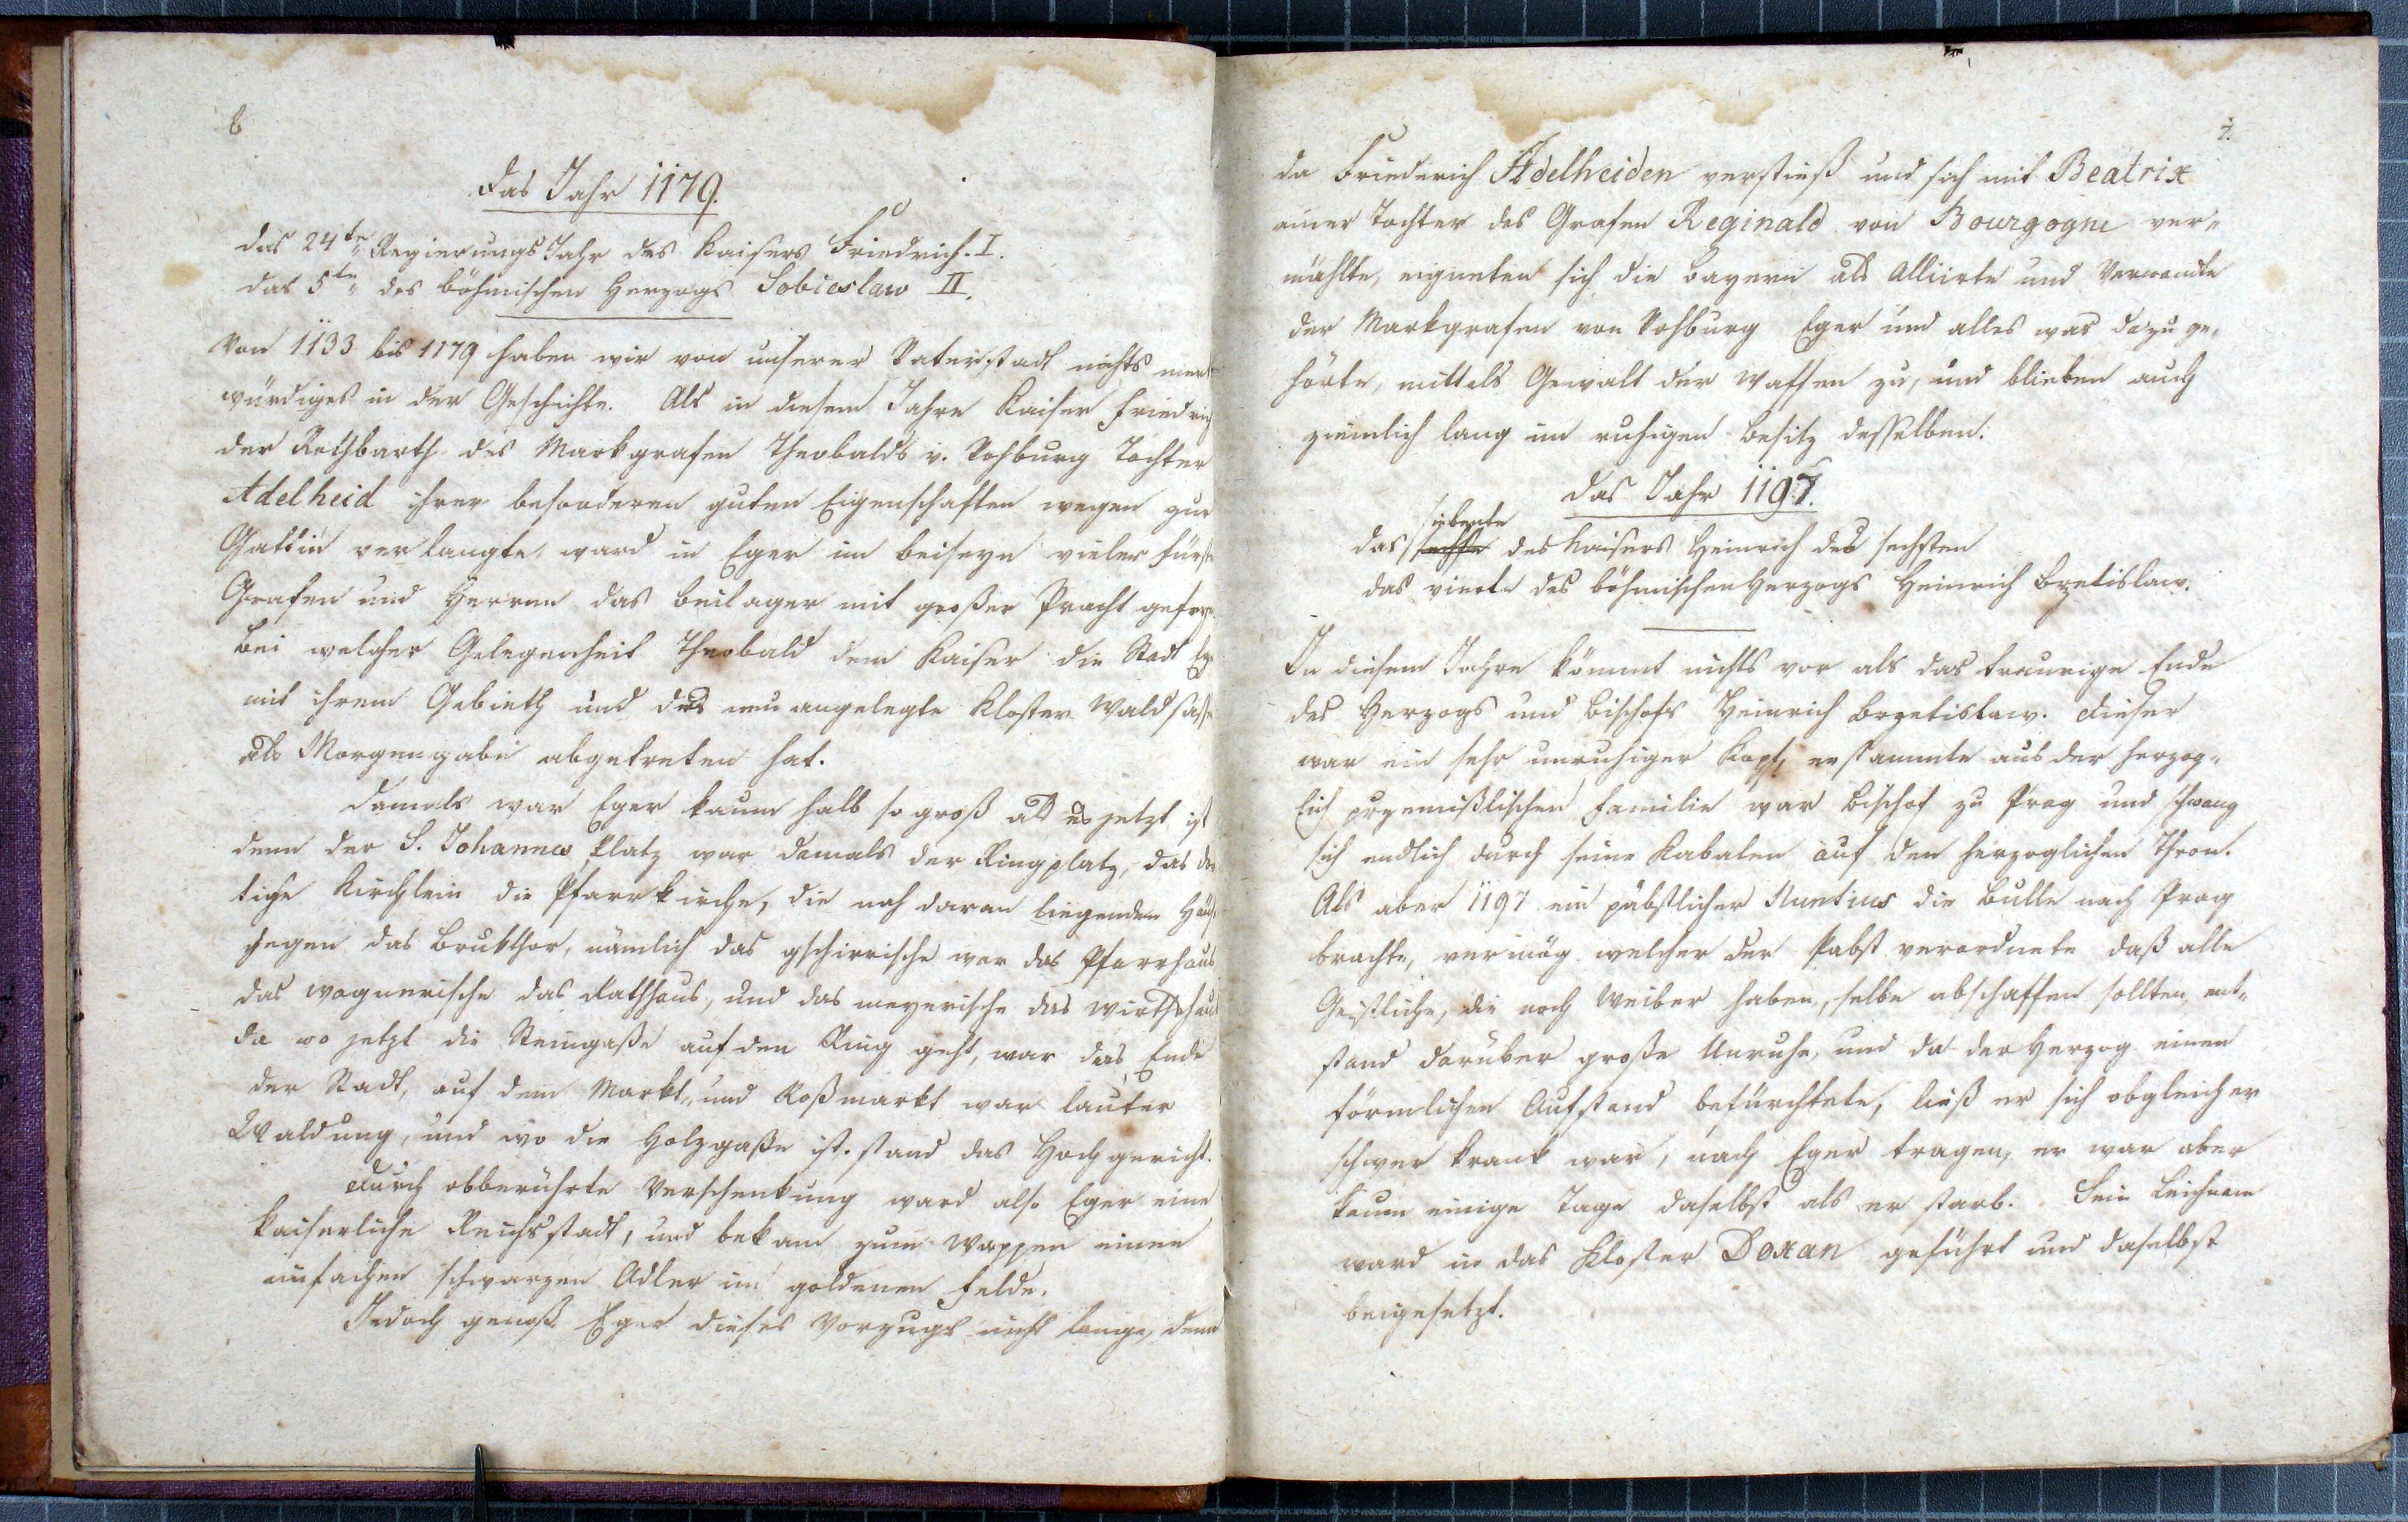 6
Das Jahr 1179.
das 24te Regierungs Jahr des Kaisers Friedrich. I.
das 5te des böhmischen Herzogs Sobieslaw II.
Von 1133 bis 1179 haben wir von unserer Vaterstadt nichts merk
würdiges in der Geschichte. Als in diesem Jahre Kaiser Friedrich
der Rothbarth des Markgrafen Theobalds v. Vohburg Tochter
Adelheid ihrer besonderen guten Eigenschaften wegen zur
Gattin verlangte, ward in Eger im beiseyn vieler Fürst
Grafen und Herren das Beilager mit großer Pracht
Bei welcher Gelegenheit Theobald dem Kaiser die Stadt Eg
mit ihrem Gebieth und das neu angelegte Kloster Waldsass
als Morgengabe abgetreten hat.
Damals war Eger kaum halb so groß als es jetzt ist
denn der S. Johannes Platz war damals der Ringplatz, das dor
tige Kirchlein die Pfarrkirche, die noch daran liegenden Häus
gegen das Brukthor, nämlich das gschirrische war das Pfarrhaus
das wagnerische das Rathhaus, und das meyerische das Wirthshaus
da wo jetzt die Steingaße auf den Ring geht, war das Ende
der Stadt, auf dem Markt„ und Roßmarkt war lauter
Waldung, und wo die Holzgaße ist. stand das Hochgericht.
Durch obberührte Verschenkung ward also Eger eine
kaiserliche Reichsstadt, und bekam zum Wappen einen
einfachen schwarzen Adler im goldenen Felde.
Jedoch genoß Eger dieses Vorzugs nicht lange, denn
7.
da Friederich Adelheiden verstieß und sich mit Beatrix
einer Tochter des Grafen Reginald von Bourgogne ver„
mählte, eigneten sich die Bayern als Alliirte und Verwandte
der Markgrafen von Vohburg Eger und alles was dazu ge„
hörte, mittels Gewalt der Waffen zu, und blieben auch
ziemlich lang im ruhigen Besitz desselben.
Das Jahr 1197.
siebente
das sechste des Kaisers Heinrich des sechsten
das vierte des böhmischen Herzogs Heinrich Brzetislaw.
In diesem Jahre kömmt nichts vor als das traurige Ende
des Herzogs und Bischofs Heinrich Brzetislaw. Dieser
war ein sehr unruhiger Kopf, er stammte aus der herzog„
lich przemißlischen Familie war Bischof zu Prag und schwang
sich endlich durch seine Kabalen auf den herzoglichen Thron.
Als aber 1197 ein päbstlicher Nuntius die Bulle nach Prag
brachte, vermög welcher der Pabst verordnete daß alle
Geistliche, die noch Weiber haben, selbe abschaffen sollten, ent„
stand darüber große Unruhe, und da der Herzog einen
förmlichen Aufstand befürchtete, ließ er sich obgleich er
schwer krank war, nach Eger tragen, er war aber
kaum einige Tage daselbst als er starb. Sein Leichnam
ward in das Kloster Doxan geführt und daselbst
beigesetzt.